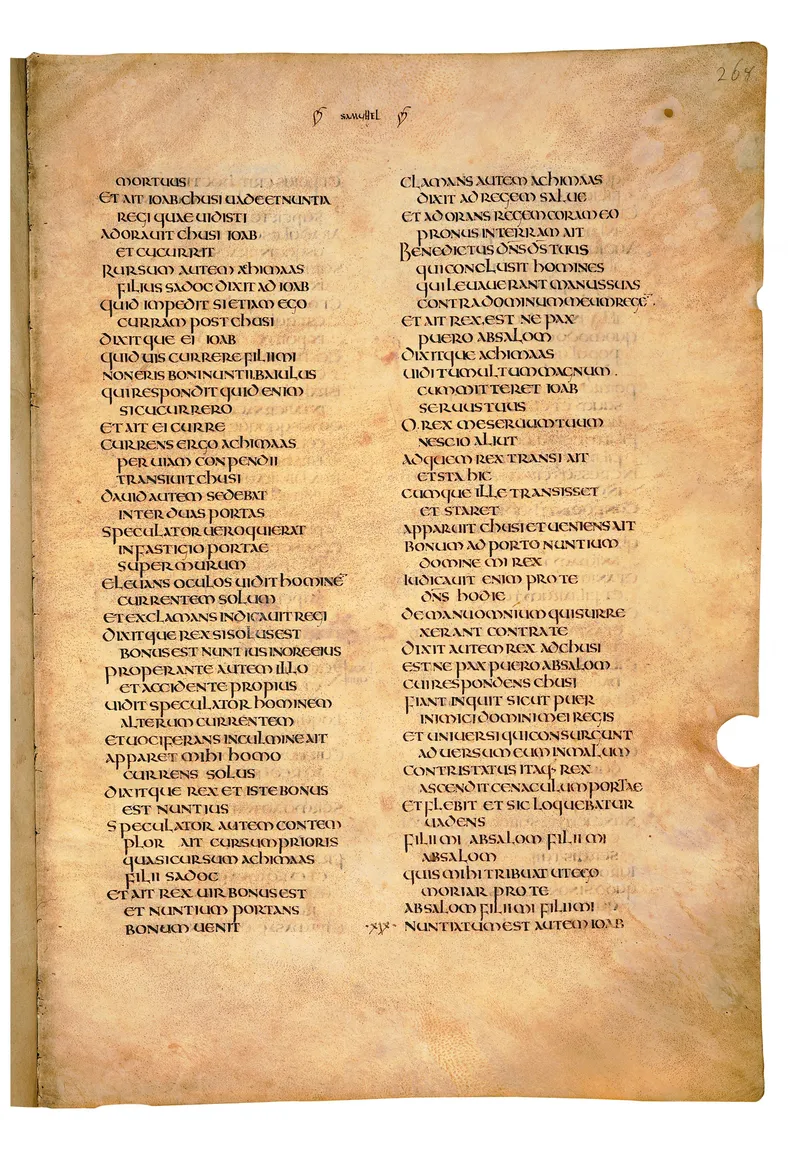 268
SAMUHEL
MORTUUS
ET AIT IOAB CHUSI UADE ET NUNTIA
REGI QUAE UIDISTI
ADORAUIT CHUSI IOAB
ET CUCURRIT
RURSUM AUTEM ACHIMAAS
FILIUS SADOC DIXIT AD IOAB
QUID IMPEDIT SI ETIAM EGO
CURRAM POST CHUSI
DIXITQUE EI IOAB
QUID UIS CURRERE FILI MI
NON ERIS BONI NUNTII BAIULUS
QUI RESPONDIT QUID ENIM
SI CUCURRERO
ET AIT EI CURRE
CURRENS ERGO ACHIMAAS
PER UIAM CONPENDII
TRANSIUIT CHUSI
DAUID AUTEM SEDEBAT
INTER DUAS PORTAS
SPECULATOR UERO QUI ERAT
IN FASTIGIO PORTAE
SUPER MURUM
ELEUANS OCULOS UIDIT HOMINE¯
CURRENTEM SOLUM
ET EXCLAMANS INDICAUIT REGI
DIXITQUE REX SI SOLUS EST
BONUS EST NUNTIUS IN ORE EIUS
PROPERANTE AUTEM ILLO
ET ACCIDENTE PROPIUS
UIDIT SPECULATOR HOMINEM
ALTERUM CURRENTEM
ET UOCIFERANS IN CULMINE AIT
APPARET MIHI HOMO
CURRENS SOLUS
DIXITQUE REX ET ISTE BONUS
EST NUNTIUS
SPECULATOR AUTEM CONTEM
PLOR AIT CURSUM PRIORIS
QUASI CURSUM ACHIMAAS
FILII SADOC
ET AIT REX UIR BONUS EST
ET NUNTIUM PORTANS
BONUM UENIT
CLAMANS AUTEM ACHIMAAS
DIXIT AD REGEM SALUE
ET ADORANS REGEM CORAM EO
PRONUS IN TERRAM AIT
BENEDICTUS DNS DS TUUS
QUI CONCLUSIT HOMINES
QUI LEUAUERANT MANUS SUAS
CONTRA DOMINUM MEUM REGE¯.
ET AIT REX. EST NE PAX
PUERO ABSALOM
DIXITQUE ACHIMAAS
UIDI TUMULTUM MAGNUM.
CUM MITTERET IOAB
SERUUS TUUS
O. REX ME SERUUM TUUM
NESCIO ALIUT
AD QUEM REX TRANSI AIT
ET STA HIC
CUMQUE ILLE TRANSISSET
ET STARET
APPARUIT CHUSI ET UENIENS AIT
BONUM ADPORTO NUNTIUM
DOMINE MI REX
IUDICAUIT ENIM PRO TE
DNS HODIE
DE MANU OMNIUM QUI SURRE
XERANT CONTRA TE
DIXIT AUTEM REX AD CHUSI
EST NE PAX PUERO ABSALOM
CUI RESPONDENS CHUSI
FIANT INQUIT SICUT PUER
INIMICI DOMINI MEI REGIS
ET UNIUERSI QUI CONSURGUNT
ADUERSUM EUM IN MALUM
CONTRISTATUS ITAQ· REX
ASCENDIT CENACULUM PORTAE
ET FLEBIT ET SIC LOQUEBATUR
UADENS
FILI MI ABSALOM FILI MI
ABSALOM
QUIS MIHI TRIBUAT UT EGO
MORIAR PRO TE
ABSALOM FILI MI FILI MI
·XIX· NUNTIATUM EST AUTEM IOAB